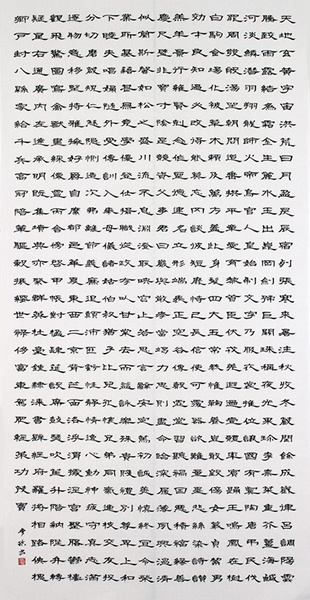 天地玄黃宇宙洪荒日月盈昃辰宿列張寒來暑往秋收冬藏閏餘成歲律呂調陽雲
騰致雨露結為霜金生麗水玉出崑岡劍號巨闕珠稱夜光果珍李柰菜重芥薑海鹹
河淡鱗潛羽翔龍師火帝鳥官人皇始制文字乃服衣裳推位讓國有虞陶唐弔民伐
罪周發殷湯坐朝問道垂拱平章愛育黎首臣伏戎羌遐邇壹體率賓歸王鳴鳳在樹
白駒食場化被草木賴及萬方蓋此身髮四大五常恭惟鞠養豈敢毀傷女慕貞絜男
效才良知過必改得能莫忘罔談彼短靡恃己長信使可覆器欲難量墨悲絲染詩讚
羔羊景行維賢剋念作聖德建名立形端表正空谷傳聲虛堂習聽禍因惡積福緣善
慶尺璧非寶寸陰是競資父事君曰嚴與敬孝當竭力忠則盡命臨深履薄夙興溫凊
似蘭斯馨如松之盛川流不息淵澄取映容止若思言辭安定篤初誠美慎終宜令榮
業所基籍甚無竟學優登仕攝職從政存以甘棠去而益詠樂殊貴賤禮別尊卑上和
下睦夫唱婦隨外受傅訓入奉母儀諸姑伯叔猶子比兒孔懷兄弟同氣連枝交友投
分切磨箴規仁慈隱惻造次弗離節義廉退顛沛匪虧性靜情逸心動神疲守真志滿
逐物意移堅持雅操好爵自縻都邑華夏東西二京背邙面洛浮渭據涇宮殿盤鬱樓
觀飛驚圖寫禽獸畫彩仙靈丙舍傍啟甲帳對楹肆筵設席鼓瑟吹笙升階納陛弁轉
疑星右通廣內左達承明既集墳典亦聚群英杜稿鍾隸漆書壁經府羅將相路俠槐
卿戶封八縣家給千兵高冠陪輦驅轂振纓世祿侈富車駕肥輕策功茂實